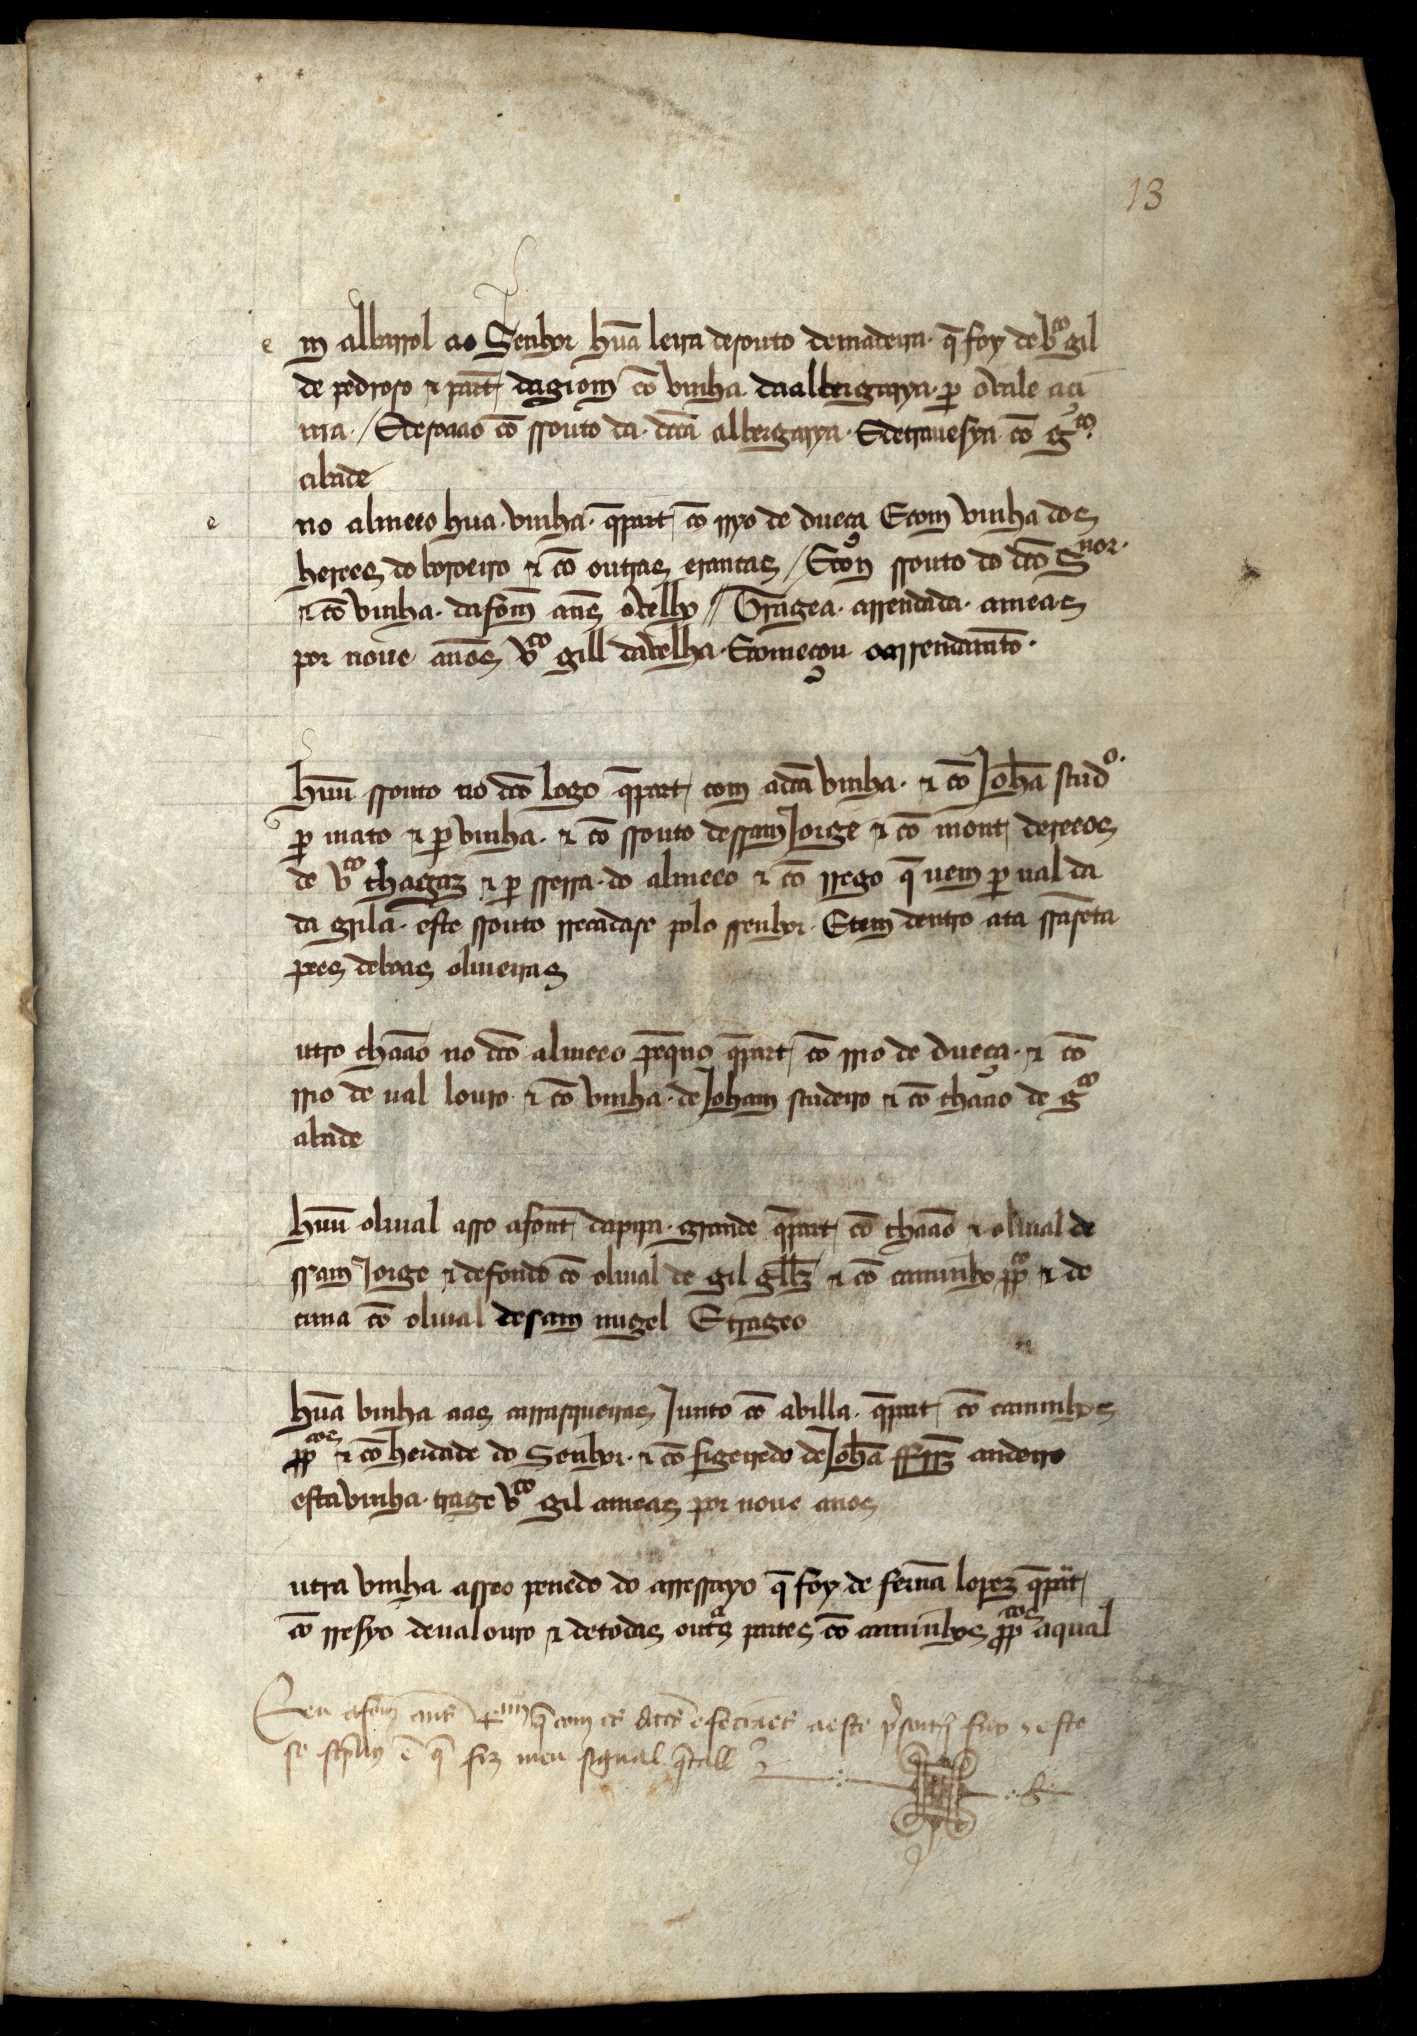 13
e m albarrol ao Senhor hũa leira desouto demadeira. q̃ foy de vco gil
de pedroso & part dagiom cõ vinha daalbergarya. per ovale aci
ma. / Edesoaao cõ ssouto da. dcta albergarya. Edetrauesya. cõ gco.
abade
e no almeeo hua. vinha. q̃part cõ rryo de dueça Ecom vinha dos
herees do boroeiro & cõ outras erancas / Ecõ ssouto do dcõ Snor.
& cõ vinha. dafom anes ovelho // Tragea. arrendada. ameas
por noue anos vco gill davelha. Ecomeçou oarrendamto.
huũ ssouto no dcõ logo q̃part com adcã vinha. & cõ Johã scudo.
per mato & per vinha. & cõ ssouto dessam Jorge & cõ mont dereeos
de vco chagaz & per sserra. do almeeo & cõ rrego q̃ uem per ual da
da grila. este ssouto rrecadase polo ssenhor. Etem dentro ata ssaseta
pees deboas oliueiras
utro chaão no dcõ almeeo pequo q̃part cõ rrio de dueça. & cõ
rrio de ual louro & cõ vinha. de Joham scudeiro & cõ chaão de gco
abade
huũ oliual asso afont dapipa. grande q̃part cõ chaão & oliual de
ssam Jorge & defondo cõ oliual de gil glz & cõ caminho ppco & de
cima cõ oliual desam migel Etrageo
hũa vinha aas carrasqueiras Junto cõ avilla. q̃part cõ caminhos
ppcos & cõ herdade do Senhor. & cõ figeiredo de Johã ffrz andeiro
estavinha. trage vco gil ameas por noue anos
utra vinha asseo penedo do arressayo q̃ foy de fernã lopez q̃part
cõ rresyo deualouro & detodas outas partes cõ caminhos ppcos aqual
Eeu afom anes q̃ com os dctos este
se scpuy e q̃ fiz meu signal q̃ tall